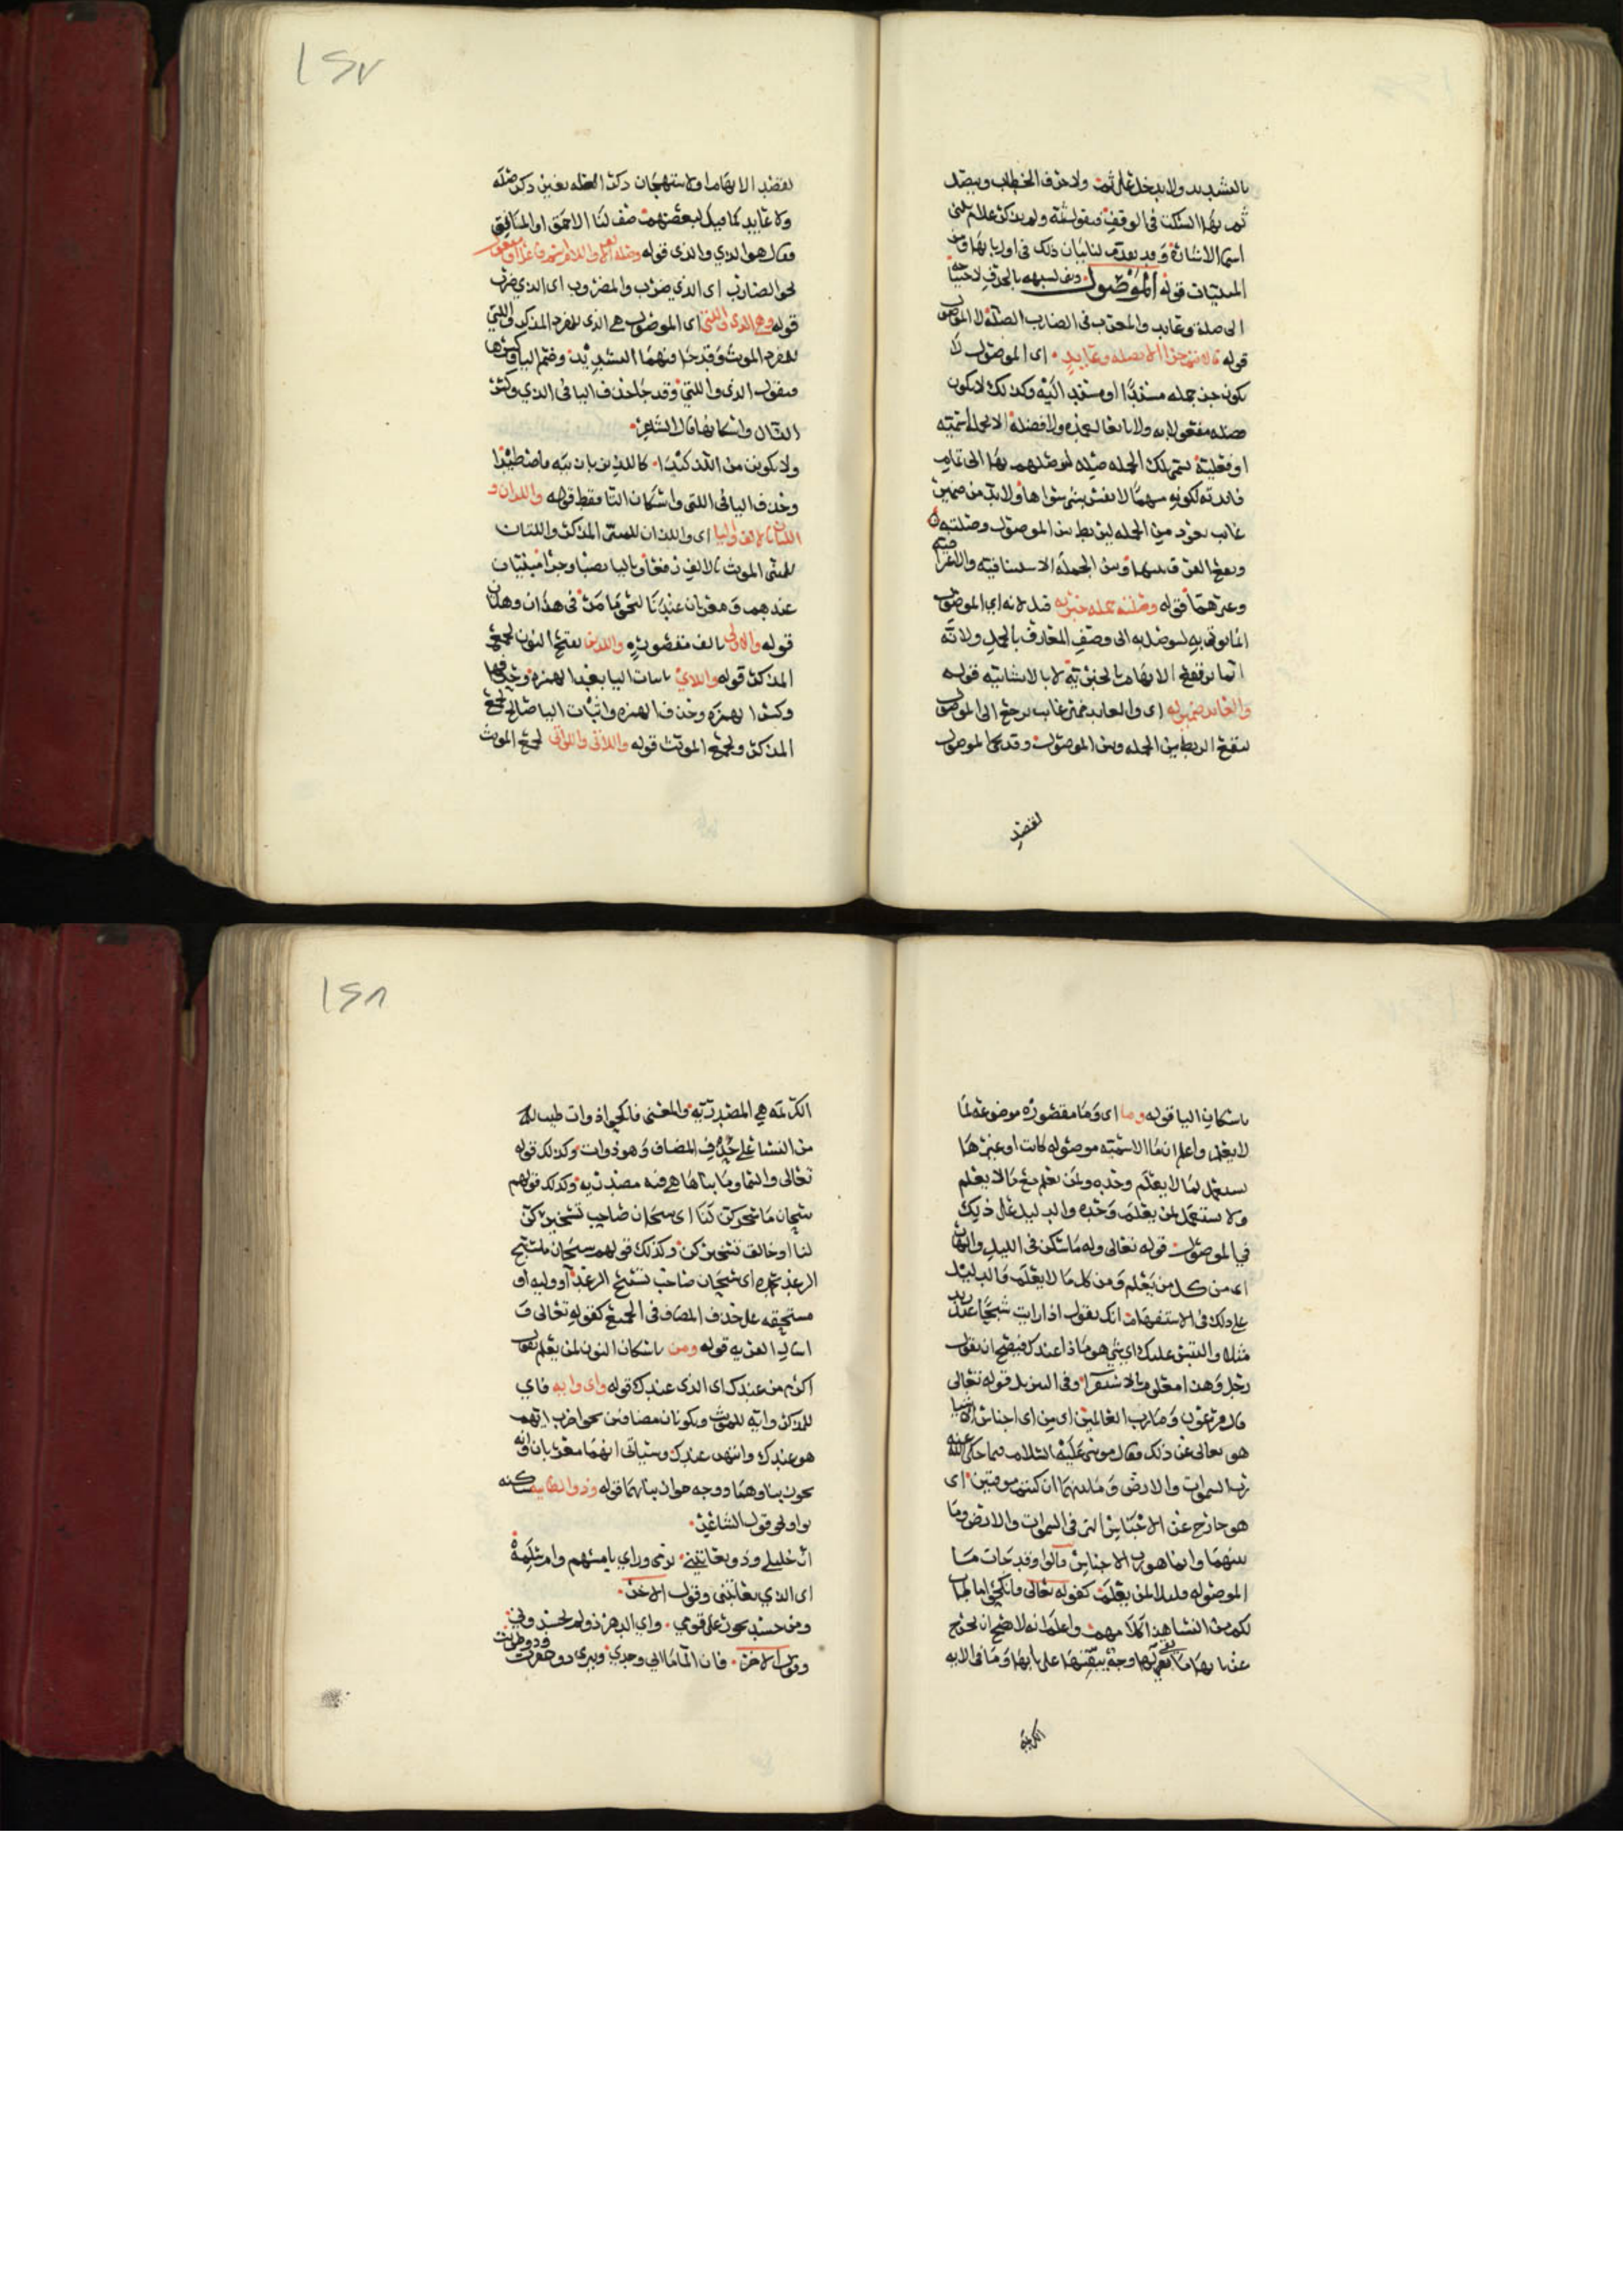 بالتشديد ولا يدخل على ثمت ولا حرف الخطاب ويتصل
ثم بها السكت في الوقف فيقول ثمه ولم يذكر علام بني
اسم الاشارة وقد تقدم لنا بيان ذلك في اول بابها ومن
المبنيات قوله الموصول وبني لشبهه بالحرف لاحتياجه
الى صلة وعايد والمعرب في الضارب الصلة لا الموصول
قوله مالا يتم جزا الا بصله وعايد اي الموصول لا
يكون جزء جمله مسندا او مسند اليه وكذلك لا يكون
فضله مفعولا به ولا تابعا لعمده ولا فضلة الا بجمله اسميه
او فعلية تسمى تلك الجمله صله
فايدته لكونه مبهما لا يفسر بشي سواها ولا بد من ضمير
غايب يعود من الجمله ليربط بين الموصول وصلته
قوله وصلته جمله خبريه قيل لانه اي الموصول
انما يوتى به ليوصل به الى وصف المعارف بالجمل ولانه
انما يرتفع الابهام بالخبرية لا بالانشائيه قوله
والعايد ضمير له اي والعايد ضمير غايب يرجع الى الموصول
ليقع الربط بين الجمله وبين الموصول وقد يجي الموصول
لقصد
١٢٧
لقصد الابهام او لاستهجان ذكر الصله بغير ذكر صله
ولا عايد كما قيل لبعضهم صف لنا الاحمق او المنافق
فقال هو الذي والذي قوله وصله الالف واللام اسم فاعل او مفعول
نحو الضارب اي الذي ضرب والمضروب اي الذي ضرب
قوله وهي الذي والتي اي الموصول هي الذي للمفرد المذكر والتي
للمفرد الموث وقد جا فيهما التشديد وضم اليا وكسرها
فيقول الذي واللتي وقد جا حذف اليا في الذي وكسر
الذال واسكانها قال الشاعر
ولا تكونن من اللذ كيدا كاللذين بان تبه فاصطيدا
وحذف اليا في اللتي واسكان التا فقط قوله واللذان و
اللتان بالالف واليا اي واللذان للمثنى المذكر واللتان
للمثنى الموث بالالف رفعا وباليا نصبا وجرا مبنيتان
عندهم ومعربان عندنا لنحو ما مر في هذان وهاتان
قوله والاولى بالف مقصوره والذين بفتح النون لجمع
المذكر قوله واللاي باثبات اليا بعد الهمزه وحذفها
وكسر الهمزه وحذف الهمزه واثبات اليا صالح لجمع
المذكر ولجمع الموث قوله واللاتي واللواتي لجمع الموث
باسكان اليا قوله وما اي وما مقصوره موضوعه لما
لا يعلم واعلم ان ما الاسميه موصوله كانت او غيرها
يستعمل لما لا يعلم وحده ولمن يعلم مع مالا يعلم
ولا يستعمل لمن يعلم وحده والدليل على ذلك
في الموصول قوله تعالى وله ما سكن في الليل والنهار
اي من كل من يعلم ومن كل ما لا يعلم والدليل
على ذلك في الاستفهام انك تقول اذا رايت شبحا عند زيد
مثلا والتبس عليك اي شي هو ماذا عندك فيصح ان يقول
رجل وهذا معلوم بالاستقرا وفي التنزيل قوله تعالى
قال فرعون وما رب العالمين اي من اي اجناس الاشيا
هو تعالى عن ذلك فقال موسى عليه السلام فيما حكى الله عنه
رب السموات والارض وما بينهما ان كنتم موقنين اي
هو خارج عن الاجناس التي في السموات والارض وما
بينهما وانما هو رب الاجناس قالوا وقد جات ما
الموصوله قليلا لمن يعلم كقوله تعالى فانكحوا ما طاب
لكم من النسا هذا كلامهم واعلم انه لا يصح ان تخرج
عن بابها ما بقي لها وجه يبقيها على بابها وما في الايه
الكريمه
١٢٨
الكريمه هي المصدريه والمعنى فانكحوا ذوات طيب لكم
من النسا على حذف المضاف وهو ذوات وكذلك قوله
تعالى والسما وما بناها هي فيه مصدريه وكذلك قولهم
سبحان ما سخركن لنا اي سبحان صاحب تسخيركن
لنا او خالق تسخيركن وكذلك قولهم سبحان ما يسبح
الرعد بحمده اي سبحان صاحب تسبيح الرعد او وليه او
مستحقه على حذف المضاف في الجميع كقوله تعالى و
اسال القريه قوله ومن باسكان النون لمن يعلم يقول
اكرم من عندك اي الذي عندك قوله واي وايه فاي
للمذكر وايه للموث ويكونان مضافين نحو اضرب ايهم
هو عندك وايتهن عندك وسياتي انهما معربان وانه
يجوز بناوهما ووجه جواز بنائهما قوله وذو الطاييه ساكنه
بواو نحو قول الشاعر
ان خليلي وذو يعاتبني يرمي وراي بامسهم وامسلمه
اي الذي يعاتبني وقول الاخر
ومن حسد يجور علي قومي واي الدهر ذو لم يحسدوني
وقول الاخر فان الما ما ابي وجدي وبيري ذو حفرت وذو طويت